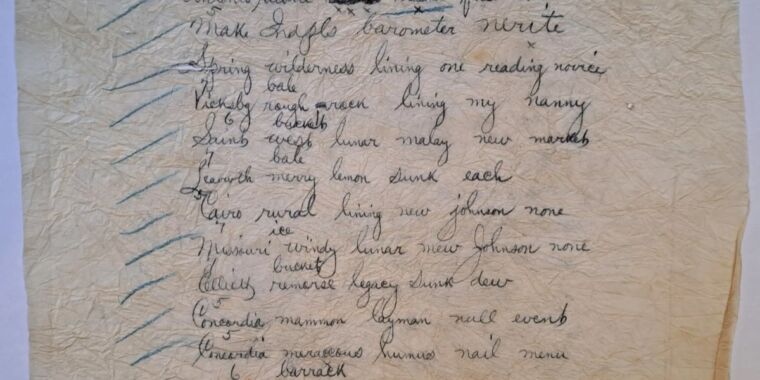 Make Indpls barometer nerite
Spring wilderness lining one reading novice
bale
Vicksby rough rock lining my nanny
6 bucket
Saint west lunar malay new market
7 bale
Leavwth merry lemon sunk each
Cairo rural lining new johnson none
7 ice
Missouri windy lunar mew Johnson none
bucket
Elliott remorse legacy sunk dew
5
Concordia mammon layman null event
5
Concordia meraccous humus nail menu
6 barrack